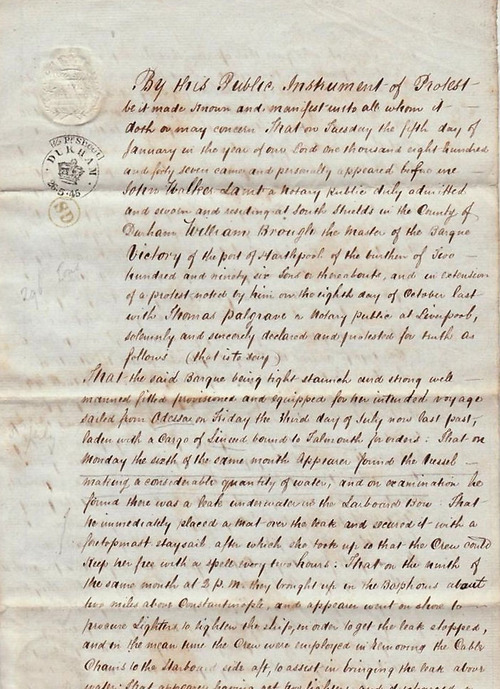 By this Public Instrument of Protest
be it made known and manifest unto all whom it
doth or may concern That on Tuesday the fifth day of
January in the year of our Lord one thousand eight hundred
and forty seven came and personally appeared before me
John Walker Lamb a Notary public duly admitted
and sworn and residing at South Shields in the County of
Durham, William Brough the Master of the Barque
Victory of the port of Hartlepool of the burthen of Two
hundred and ninety six Tons or thereabouts, and in extension
of a protest noted by him on the eighth day of October last
with Thomas Palgrave a Notary public at Liverpool,
solemnly and sincerely declared and protested for truth as
follows (that is to say)
That the said Barque being tight staunch and strong well
manned fitted provisioned and equipped for her intended voyage
sailed from Odessa on Friday the third day of July now last past,
laden with a Cargo of Linseed bound to Falmouth for orders: That on
Monday the sixth of the same month Appearer found the Vessel
making a considerable quantity of water, and on examination he
found there was a leak underwater in the Larboard Bow: That
he immediately placed a mat over the leak and secured it with a
foretopmast staysail after which she took up so that the Crew could
keep her free with a spell every two hours: That on the ninth of
the same month at 2 P.M. they brought up in the Bosphorus about
two miles above Constantinople, and appearer went on shore to
procure Lighters to lighten the ship, in order to get the leak stopped,
and in the mean time the Crew were employed in removing the Cable
Chains to the starboard side aft, to assist in bringing the leak above
water: that appearer having got two lighters and discharged
DURHAM
26·5·46